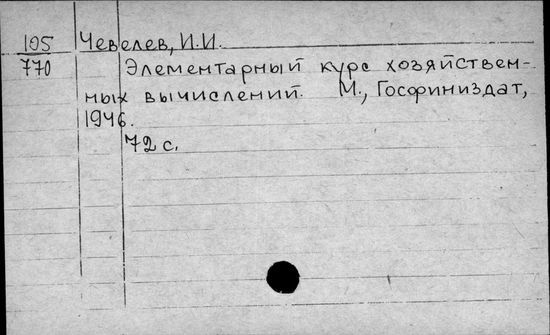 105 Чевелев, И.И.
770 Элементарный курс хозяйствен-
ных вычислений. М., Госфиниздат,
1946.
72 с.